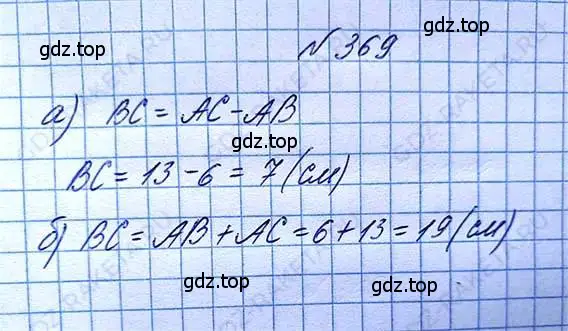 gdz.top
gdz.top
№369
а) BC = AC - AB
gdz.top
BC = 13 - 6 = 7 (см)
б) BC = AB + AC = 6 + 13 = 19 (см)
gdz.top
gdz.top